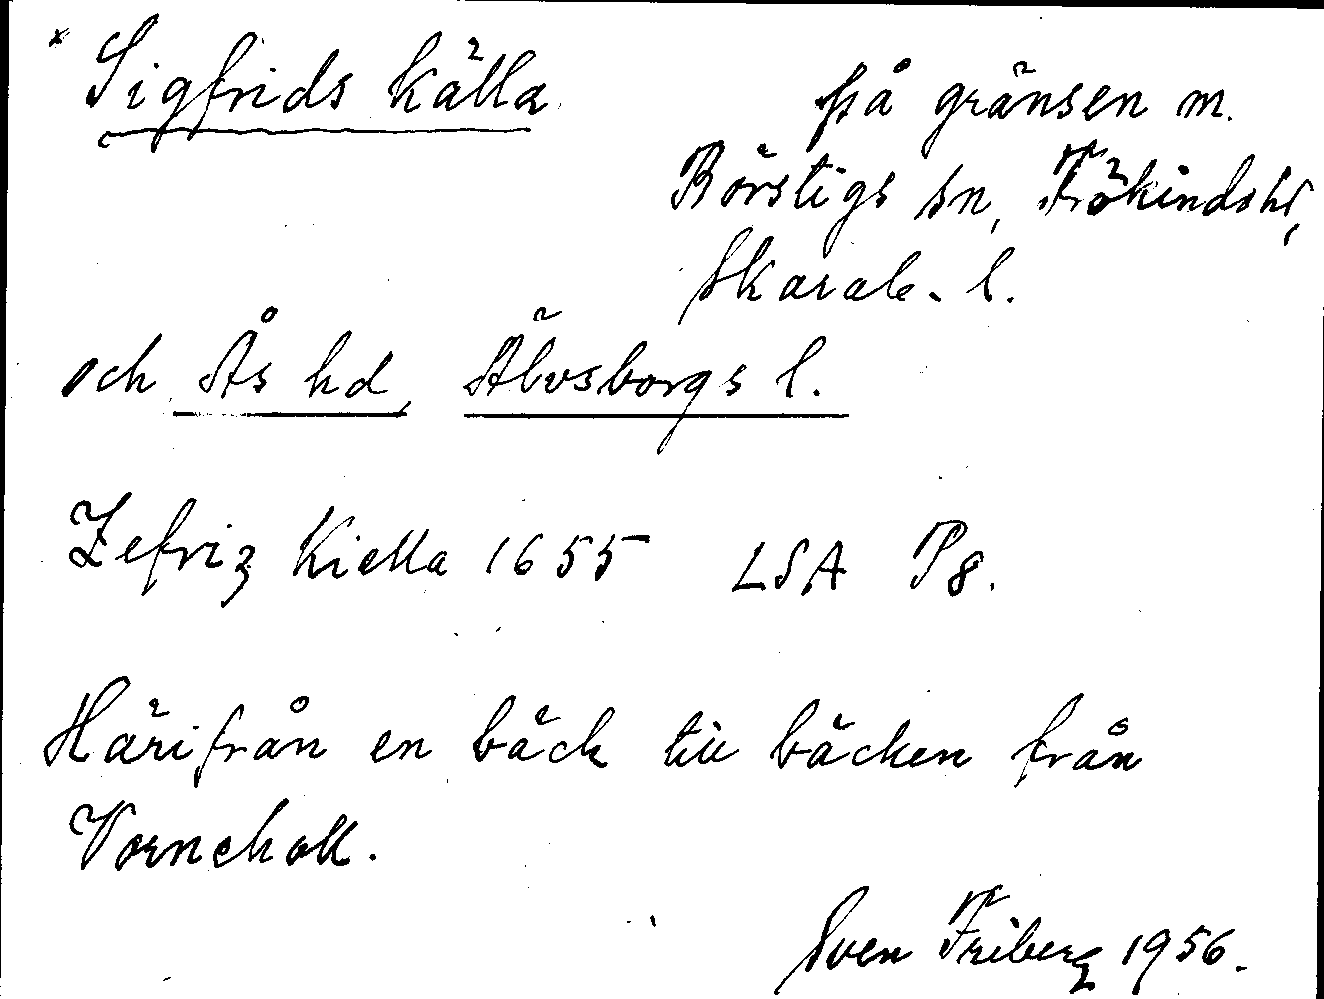 * Sigfrids källa
på gränsen m.
Börstigs sn, Frökinds hd,
Skarab. l.
och Ås hd, Älvsborgs l.
Zefriz Kiella 1655 LSA P8.
Härifrån en bäck till bäcken från
Vornehall.
Sven Friberg 1956.